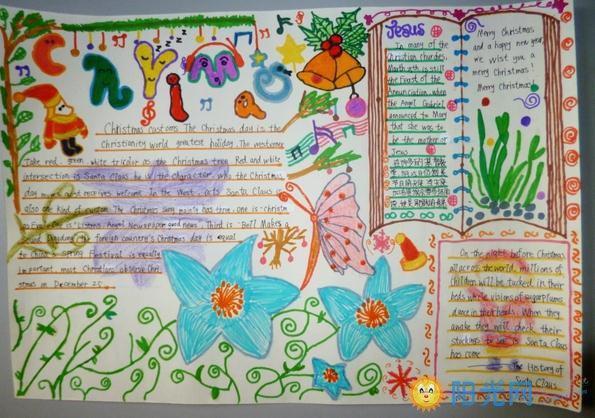 Christmas customs The Christmas day is the
Christianity world greatest holiday. The westerner
Take red, green, white tricolor as the Christmas tree Red and white
intersection is Santa Claus he is the character, who the Christmas
day most receives welcome. In the West, acts Santa Claus is
also one kind of custom. The Christmas song main is has three. one is christm
as Eve. One is "Listens Angel Newspaper good news. Third is "Bell Makes a
foreign country's Christmas day is equal
to China's Spring Festival is equally
important. most Christian observe Chri
stmas on December 25
Jesus
In many of the
Christian Churches,
March 25th is still
the Feast of the
Annunciation, when
the Angel Gabriel
announced to Mary
that she was to
be the mother of
Jesus
Merry Christmas
and a happy new year,
We wist you a
merry Christmas!
Merry Christmas
On the night before Christmas
all across the world, millions of
children will be tucked in their
beds while visions of sugarplums
dance in their heads. When they
awake they will check their
stockings to see is Santa Claus
has come
The History of
Santa Claus
阳光网